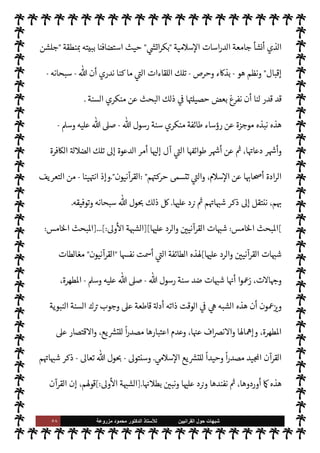 الذي أنشأ جامعة الدراسات الإسلامية "بكراتشي" حيث استضافنا ببيته بمنطقة "جلشن
إقبال" ونظم هو - بذكاء وحرص - تلك اللقاءات التي ما كنا ندري أن الله - سبحانه -
قد قدر لنا أن نفرغ بعض حصيلتها في ذلك البحث عن منكري السنة .
هذه نبذه موجزة عن رؤساء طائفة منكري سنة رسول الله - صلى الله عليه وسلم -
وأشهر دعاتها، ثم عن أشهر طوائفها التي آل إليها أمر الدعوة إلى تلك الضلالة الكافرة
الرادة أصحابها عن الإسلام، والتي تتسمى حركتهم" :القرآنيون".وإذ انتهينا - من التعريف
بهم، ننتقل إلى ذكر شبهاتهم ثم رد عليها.كل ذلك بحول الله سبحانه وتوفيقه.
]المبحث الخامس: شبهات القرآنيين والرد عليها][الشبهة الأولى:]...[المبحث الخامس:
شبهات القرآنيين والرد عليها[لهذه الطائفة التي أسمت نفسها "القرآنيون" مغالطات
وجهالات، زعموا أنها شبهات ضد سنة رسول الله - صلى الله عليه وسلم - المطهرة،
ويزعمون أن هذه الشبه هي في الوقت ذاته أدلة قاطعة على وجوب ترك السنة النبوية
المطهرة، وإهمالها والانصراف عنها، وعدم اعتبارها مصدراً للتشريع، والاقتصار على
القرآن المجيد مصدراً وحيداً للتشريع الإسلامي. وسنتولى - بحول الله تعالى - ذكر شبهاتهم
هذه كما أوردوها، ثم نفندها ونرد عليها ونبين بطلانها.[الشبهة الأولى:]قولهم، إن القرآن
شبهات حول القرانيين للأستاذ الدكتور محمود مزروعة ٥١